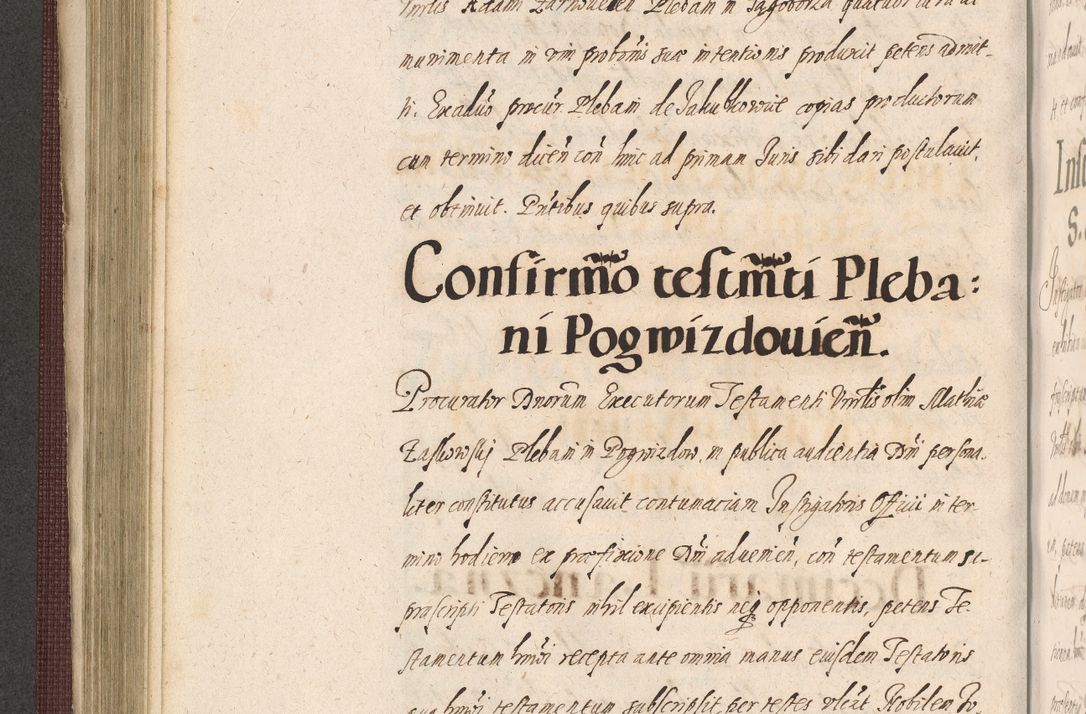 munimenta in vim probōnis suæ intentionis produxit petens admit-
ti. Ex aduo procur Plebani de Jakubkowice copias productorum
cum termino dicen con hinc ad primam Juris sibi dari postulauit,
et obtinuit. Pñtibus quibus supra.
Confirm̃o testm̃ti Pleba:
ni Pogwizdouień.
Procurator Dnorum Executorum Testamenti Vnrlis olim Mathiæ
Plebani in Pogwizdow, in publica audientia Dni persona-
liter constitutus accusauit contumaciam Instigatoris Officii in ter-
mino hodierno ex præfixione Dni aduenien, con testamentum su-
prascripti Testatoris nihil excipientis neq opponentis, petens Te-
stamentum hmoi recepta ante omnia manus eiusdem Testatoris
hmoi testamentum subscripsit, per testes Nobilem Jo-